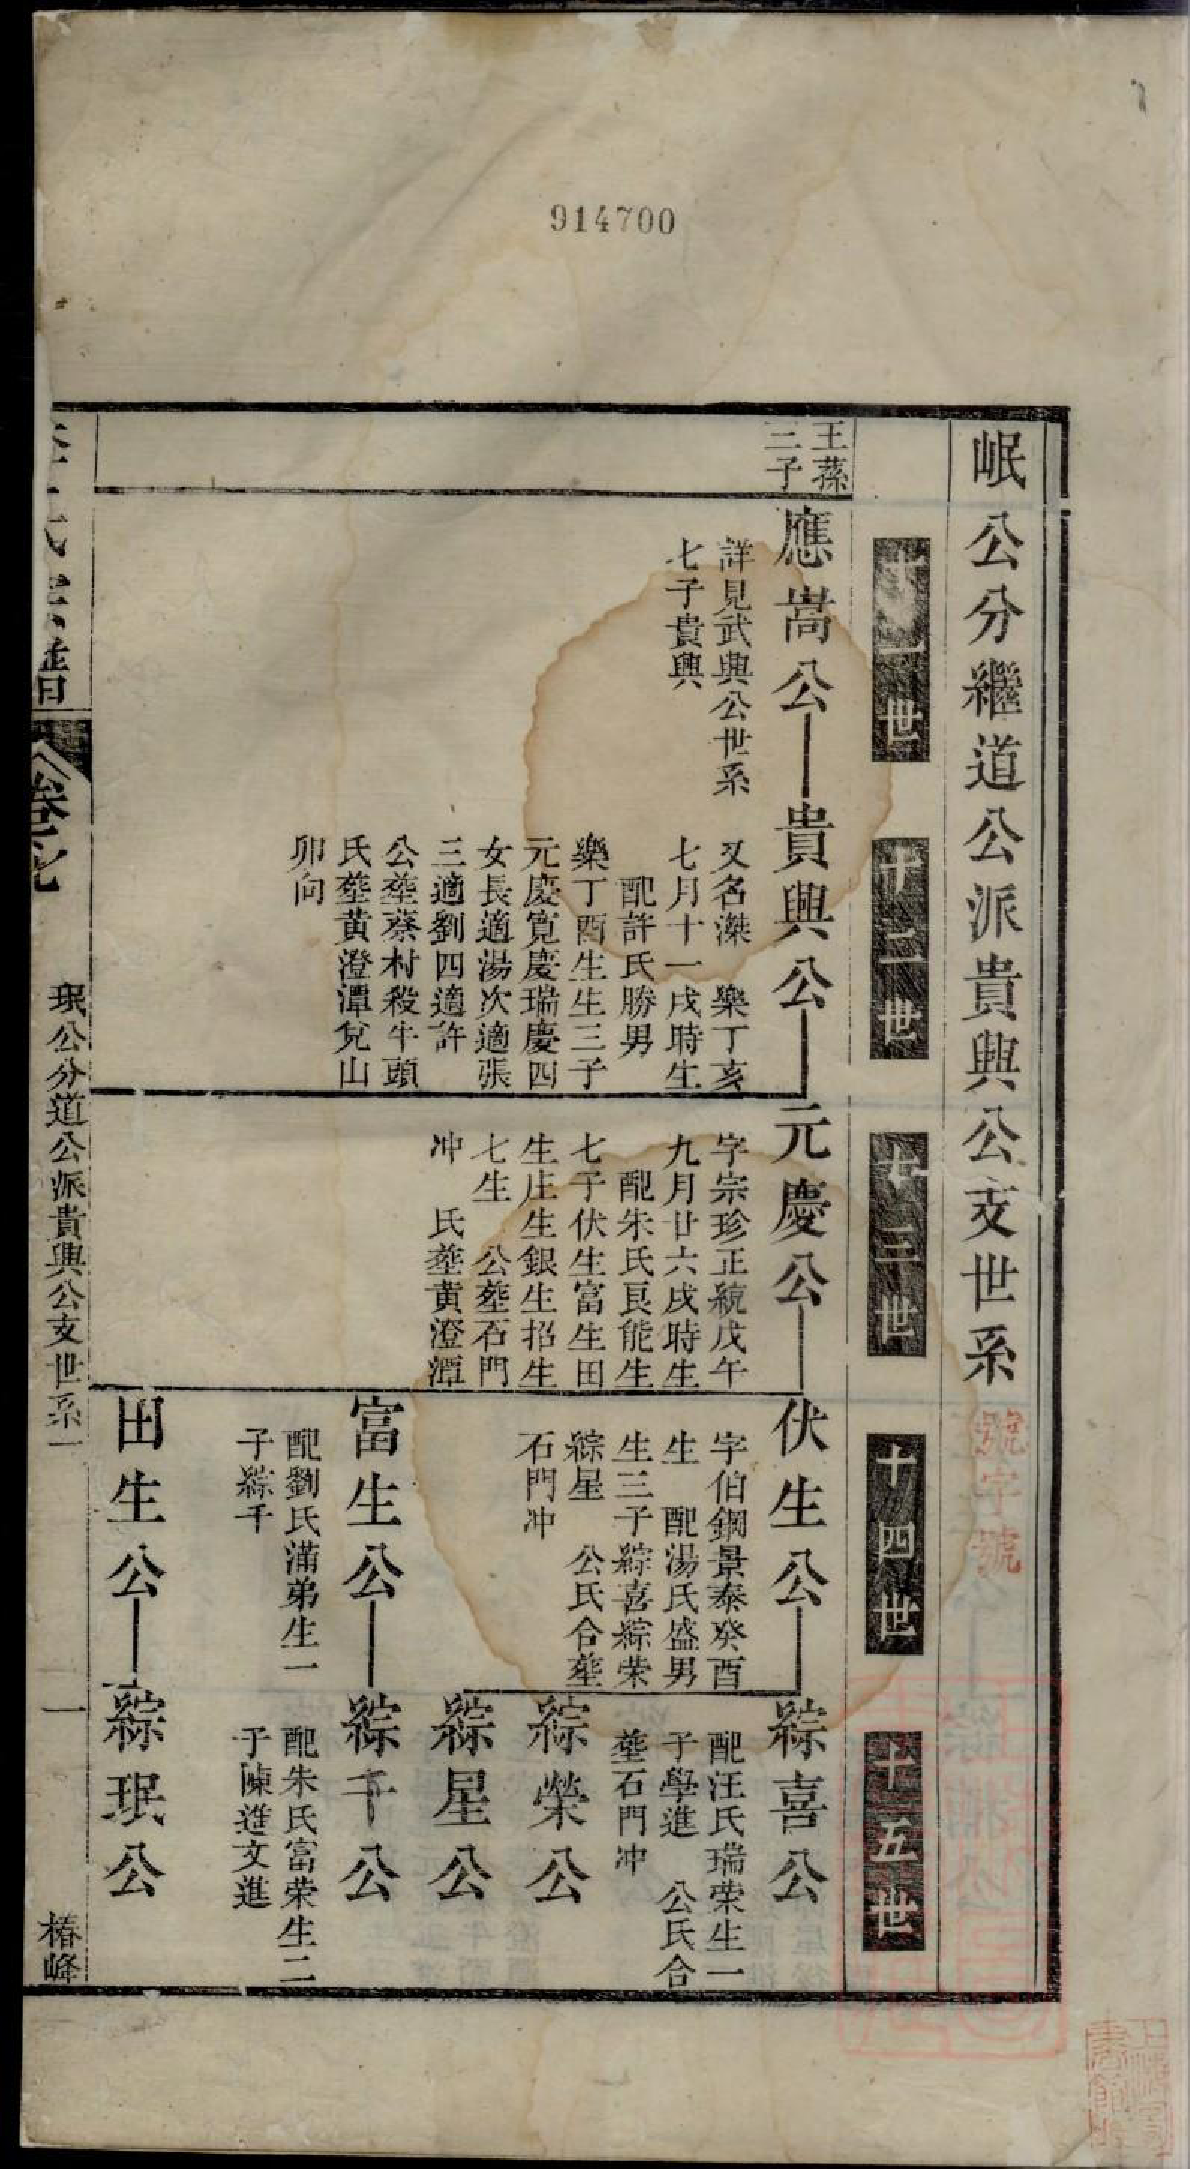 914700
岷公分繼道公派貴興公支世系
號字號
十一世
十二世
十三世
十四世
十五世
王蓀
三子
應嵩公
詳見武興公世系
七子貴興
貴興公
又名滐　樂丁亥
七月十一戌時生
配許氏勝男
樂丁酉生生三子
元慶寬慶瑞慶四
女長適湯次適張
三適劉四適許
公塟蔡村殺牛頭
氏塟黃澄潭兌山
卯向
元慶公
字宗珍正統戊午
九月廿六戌時生
配朱氏良能生
七子伏生富生田
生庄生銀生招生
七生　公塟石門
冲　氏塟黃澄潭
伏生公
字伯鋼景泰癸酉
生　配湯氏盛男
生三子綜喜綜荣
綜星　公氏合塟
石門冲
富生公
配劉氏滿弟生一
子綜千
田生公
綜喜公
配汪氏瑞荣生一
子學進　公氏合
塟石門冲
綜榮公
綜星公
綜千公
配朱氏富荣生二
子陳進文進
綜珉公
氏宗譜
卷七
珉公分道公派貴興公支世系一
一
椿峰